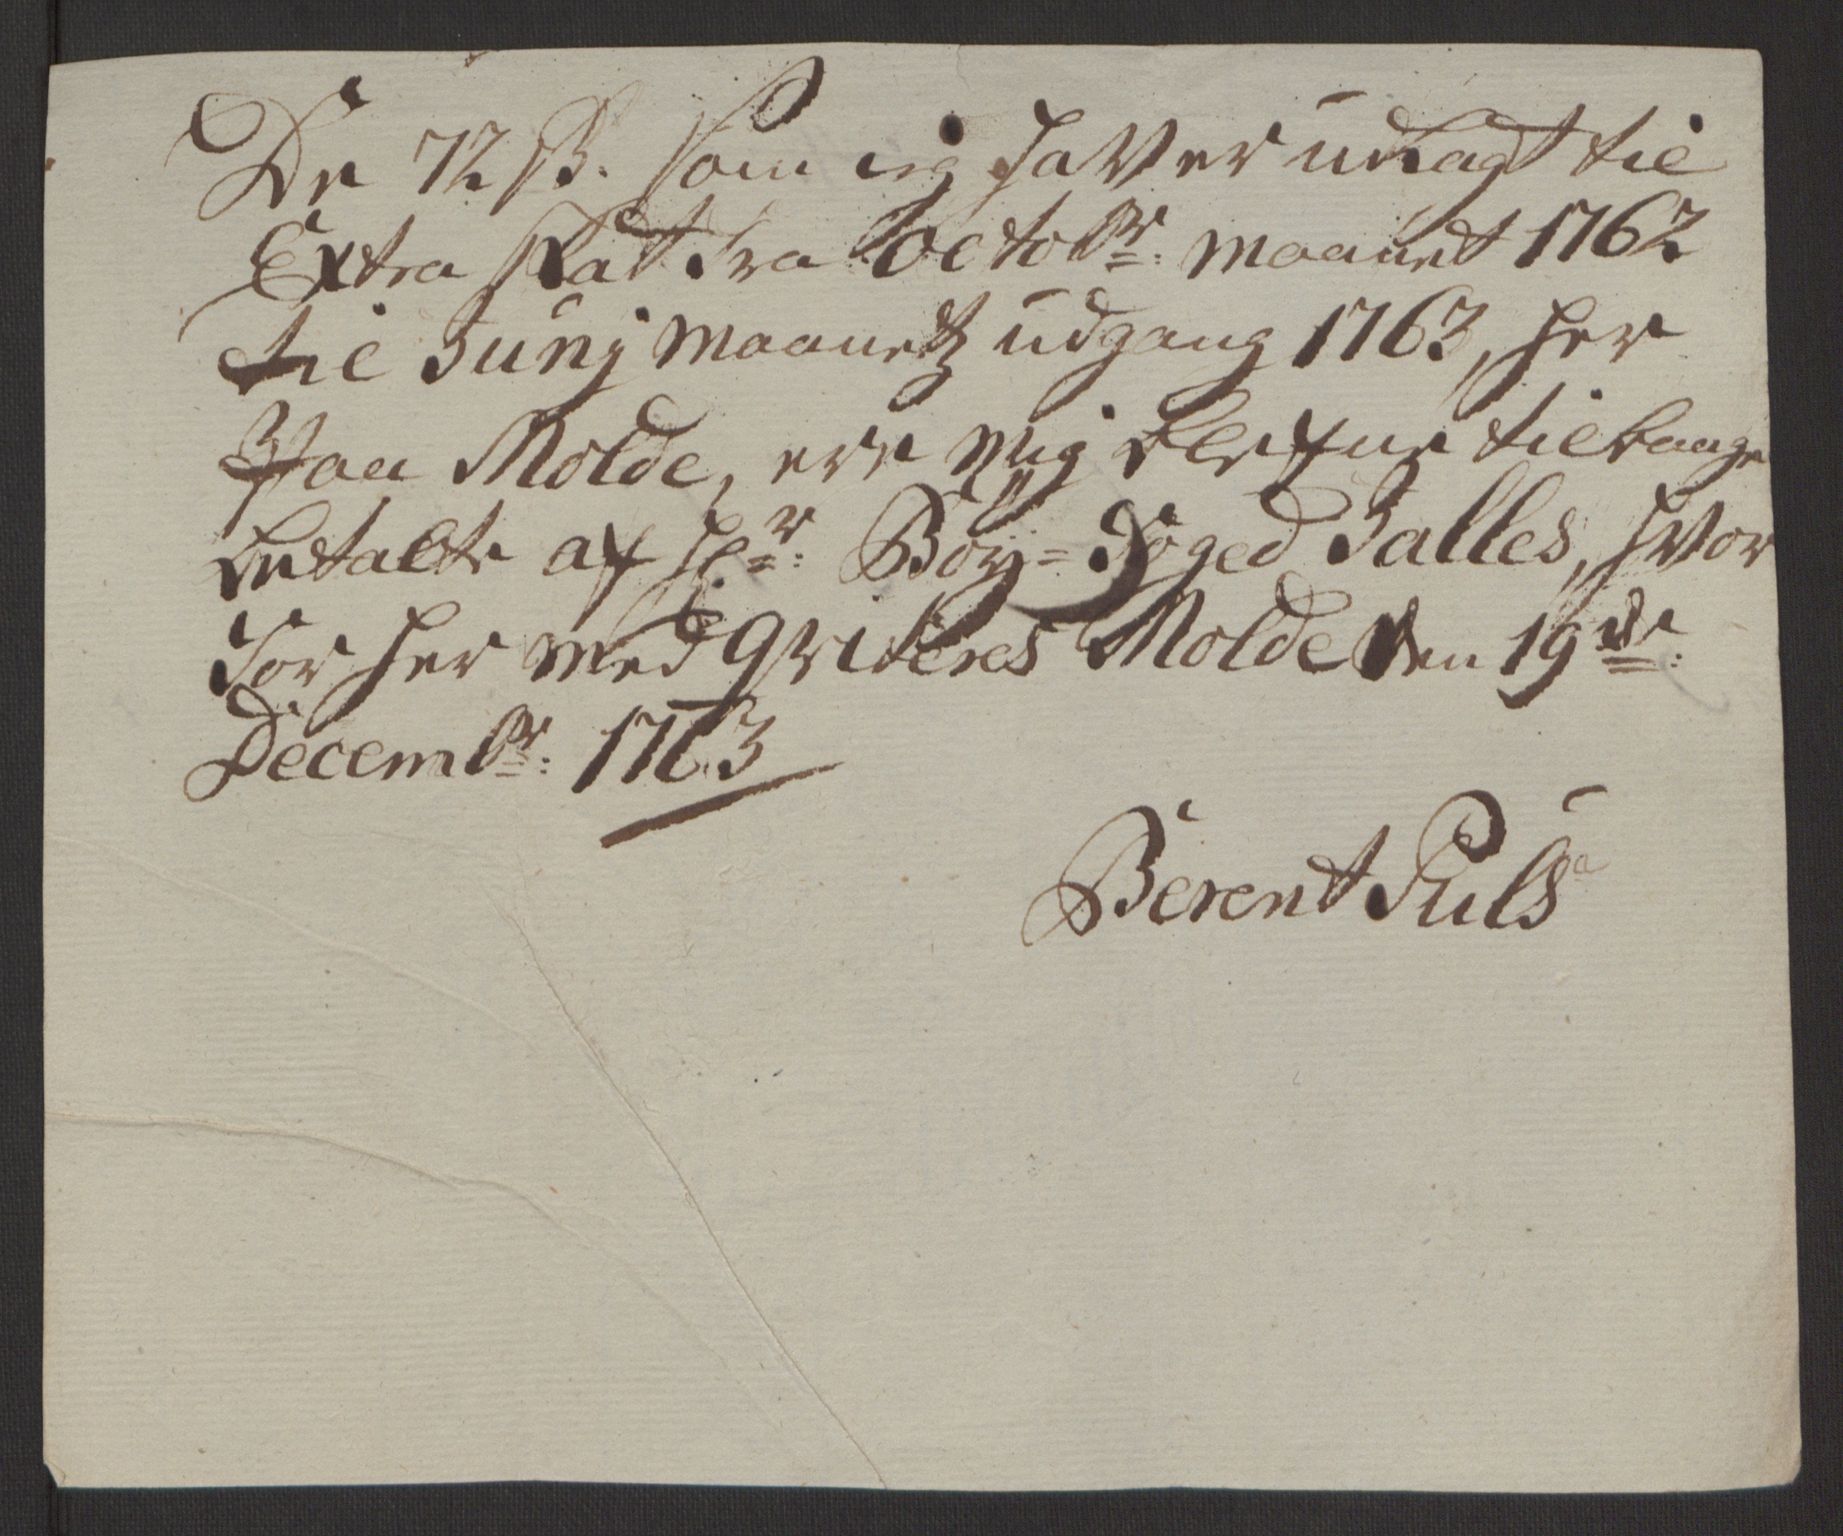 De 72 ß. som ieg haver udlagt til
Extra Skat fra Octobr: maanet 1762
til Junj maanetz udgang 1763, her
Paa Molde, ere mig Derfore tilbauge
betalte af Hr: Böÿ-foged Salles, hvor
for her med qviteres Molde den 19de:
Decembr: 1763
Berent